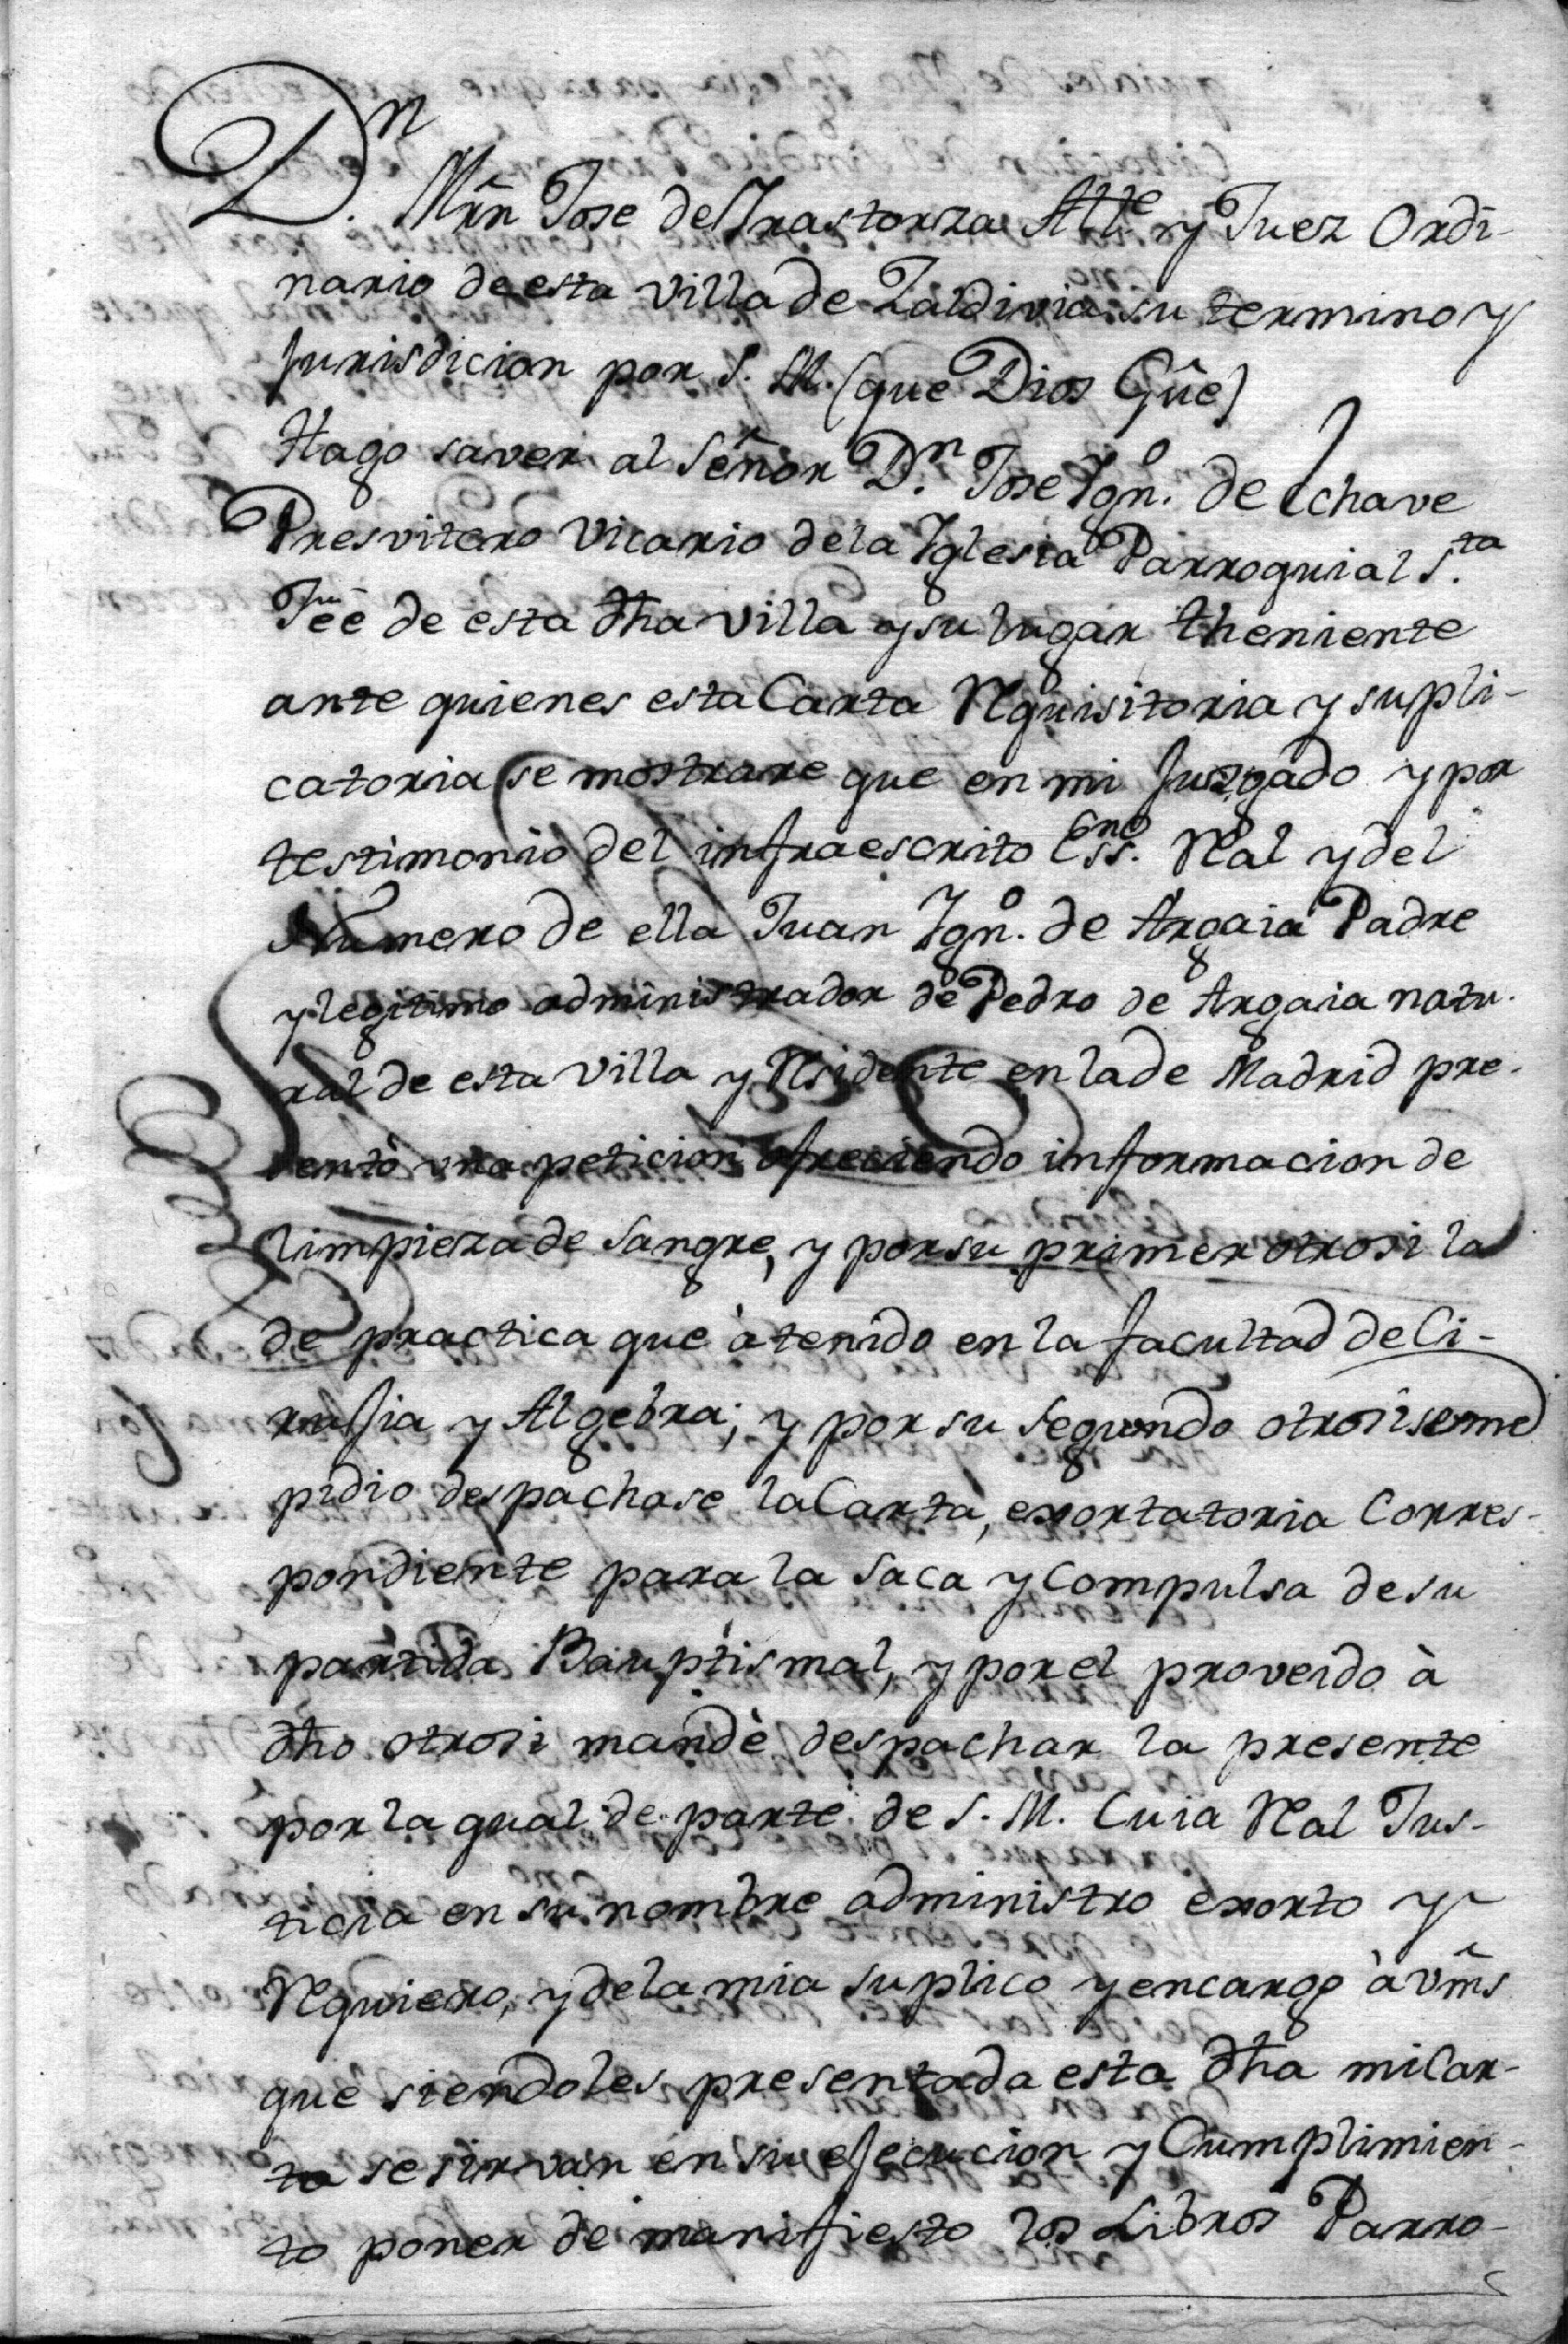 Dn. Mrn Jose de Irastorza Alle. y Juez Ordi-
nario de esta villa de Zaldivia su termino y
Jurisdicion por S. M. (que Dios Gûe)
Hago saver al Señor Dn. Jose Ygno. de Echave
Presvitero Vicario de la Yglesia Parroquial S.ta
Feê de esta dha villa y su lugar theniente
ante quienes esta Carta Rquisitoria y supli-
catoria se mostrare que en mi Juzgado y por
testimonio del infraescrito Essno. Ral y del
Numero de ella Juan Ygno. de Argaia Padre
y legitimo administrador de Pedro de Argaia natu-
ral de esta Villa y Rsidente en la de Madrid pre-
sentò una peticion ofreciendo informacion de
limpieza de Sangre, y por su primer otrosi la
de practica que à tenido en la facultad de Ci-
rujia y Algebra; y por su Segundo otrosi se me
pidio despachase la Carta, exortatoria Corres-
pondiente para la Saca y Compulsa de su
partida Bauptismal, y por el proveido à
dho otrosi mandè despachar la presente
por la qual de parte de S. M. Cuia Ral Jus-
ticia en su nombre administro exorto y
Rquiero, y de la mia suplico y encargo à Vms
que siendoles presentada esta dha mi Car-
ta se sirvan en su ejecucion y Cumplimien-
to poner de manifiesto los Libros Parro-